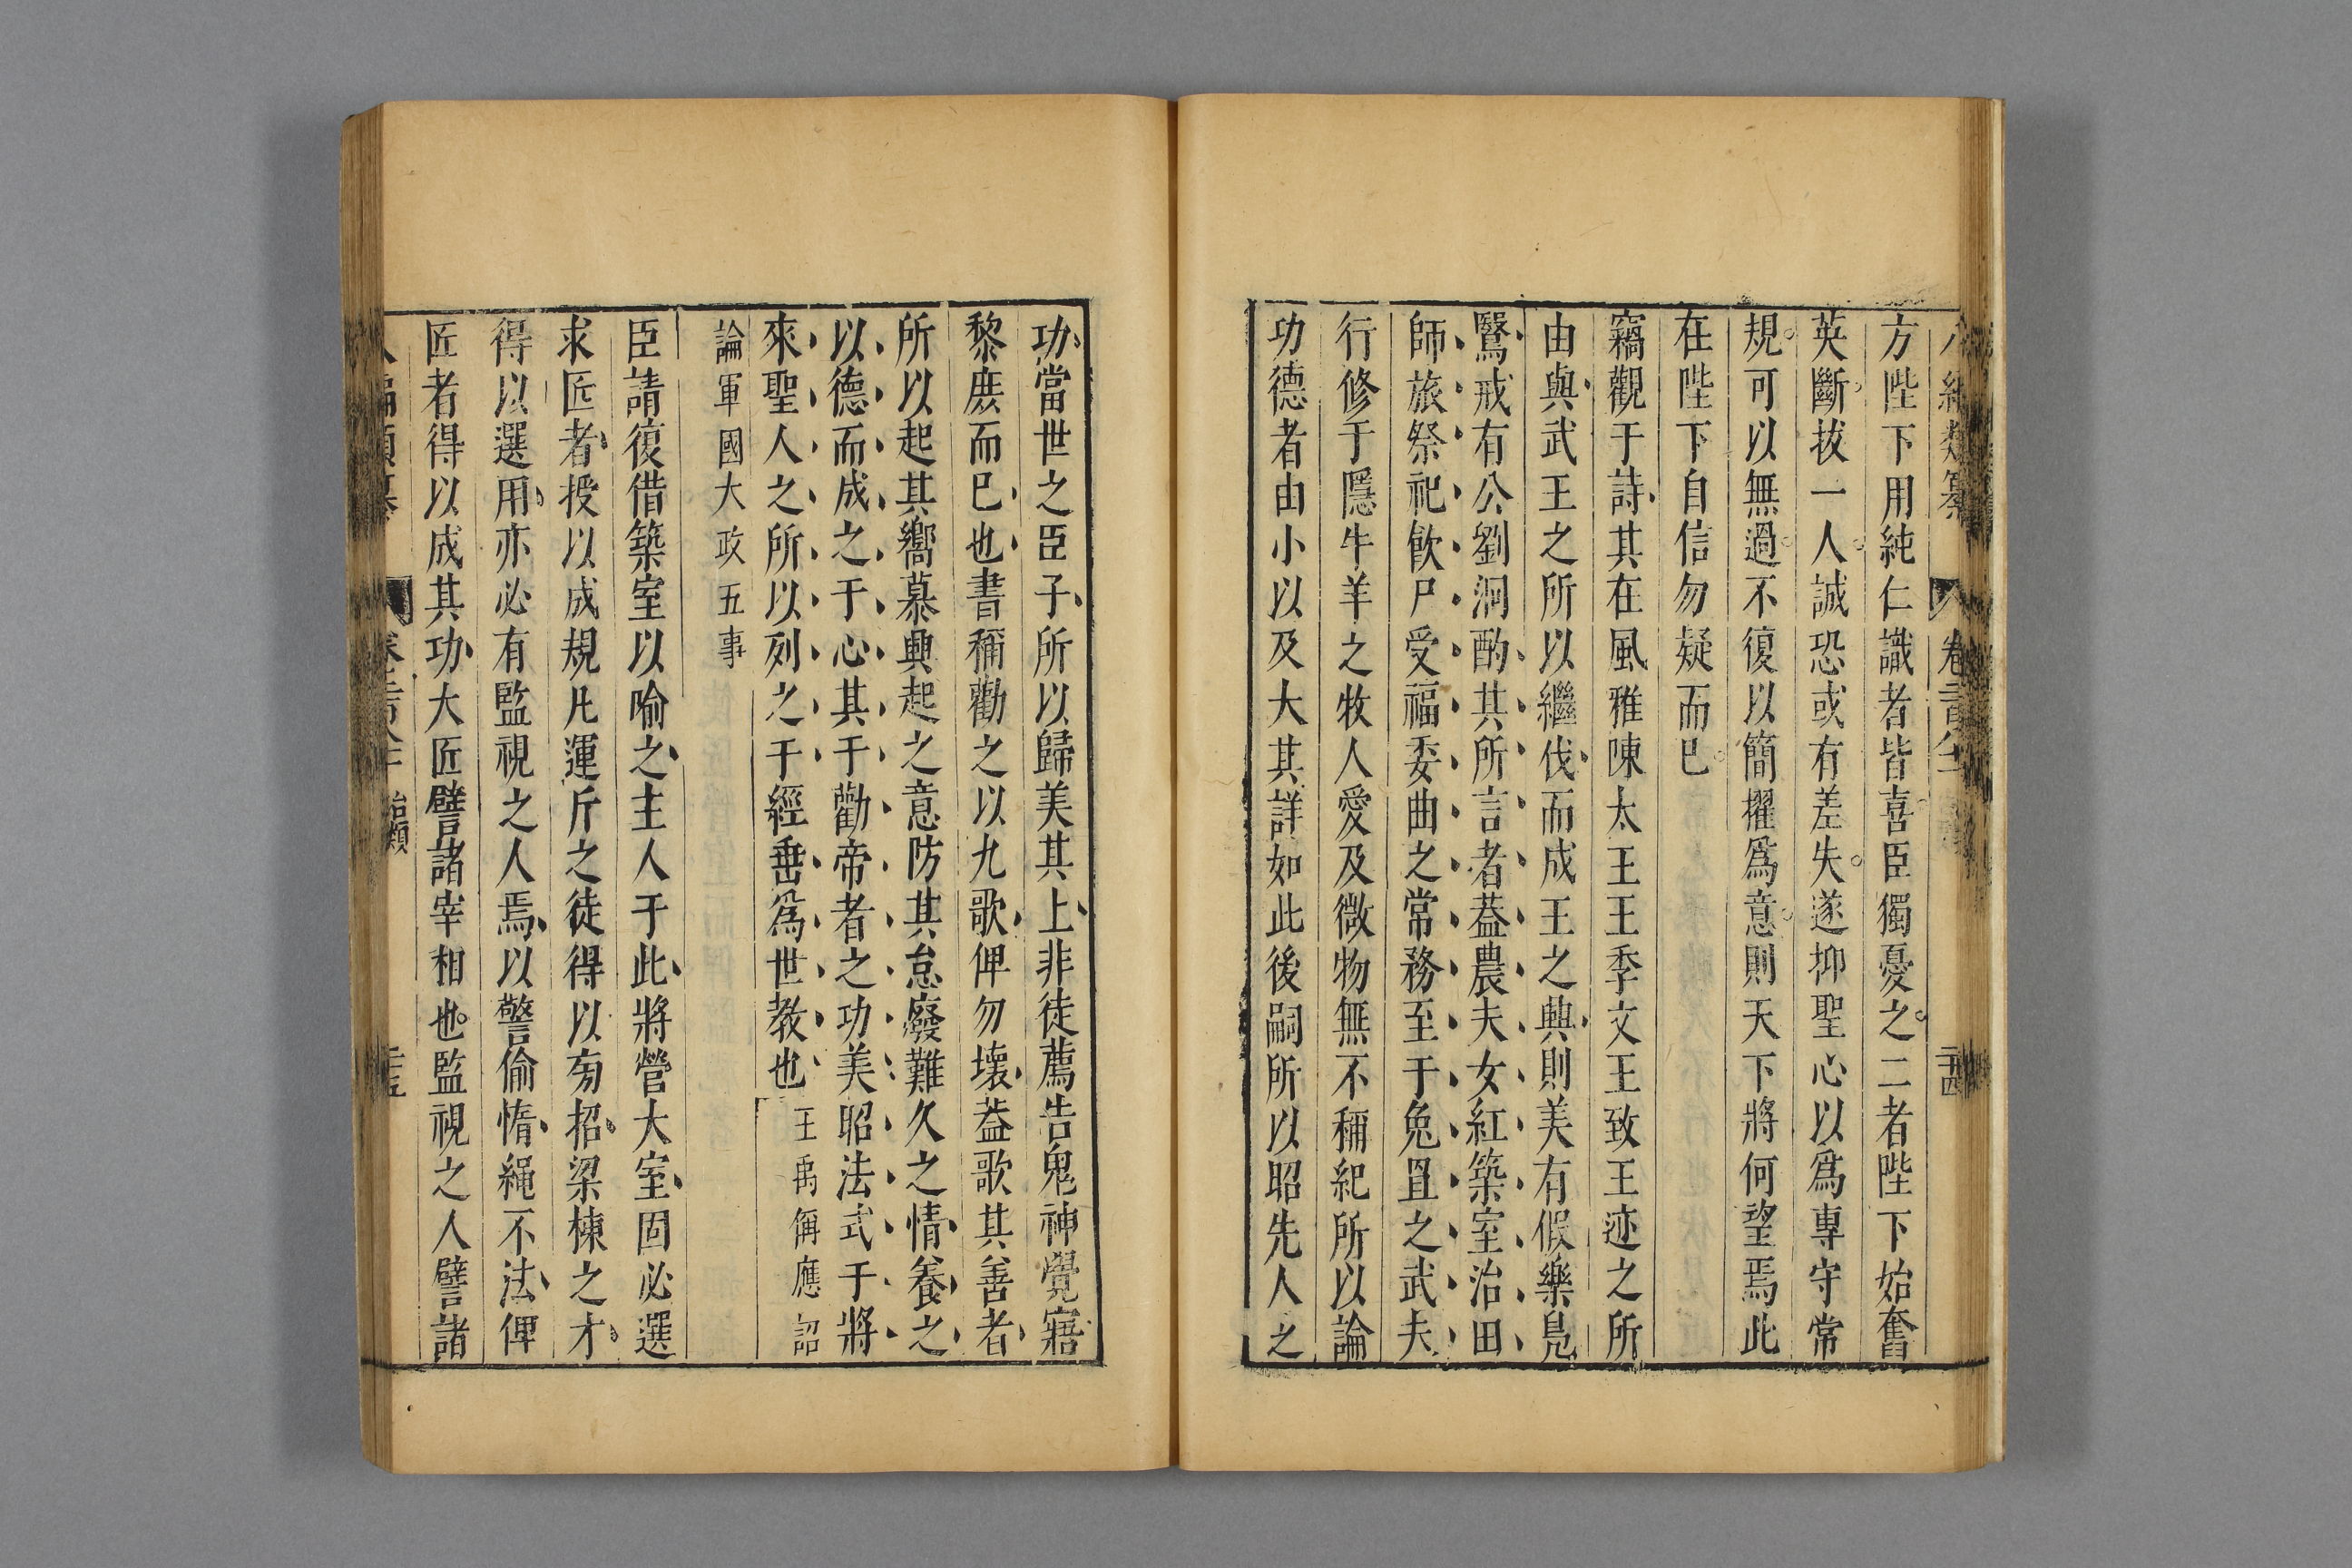 方陛下用純仁識者皆喜臣獨憂之二者陛下始奮
英斷拔一人誠恐或有差失遂抑聖心以爲專守常
規可以無過不復以簡擢爲意則天下將何望焉此
在陛下自信勿疑而已
竊觀于詩其在風雅陳太王王季文王致王迹之所
由與武王之所以繼伐而成王之興則美有假樂鳧
鷖戒有公劉泂酌其所言者葢農夫女紅築室治田
師旅祭祀飲尸受福委曲之常務至于兔罝之武夫
行修于隱牛羊之牧人愛及微物無不稱紀所以論
功德者由小以及大其詳如此後嗣所以昭先人之
功當世之臣子所以歸美其上非徒薦告鬼神覺寤
黎庶而已也書稱勸之以九歌俾勿壞葢歌其善者
所以起其嚮慕興起之意防其怠廢難久之情養之
以德而成之于心其于勸帝者之功美昭法式于將
來聖人之所以列之于經垂爲世教也 王禹偁應詔
論軍國大政五事
臣請復借築室以喻之主人于此將營大室固必選
求匠者授以成規凡運斤之徒得以旁招梁棟之才
得以選用亦必有監視之人焉以警偷惰繩不法俾
匠者得以成其功大匠譬諸宰相也監視之人譬諸
治類